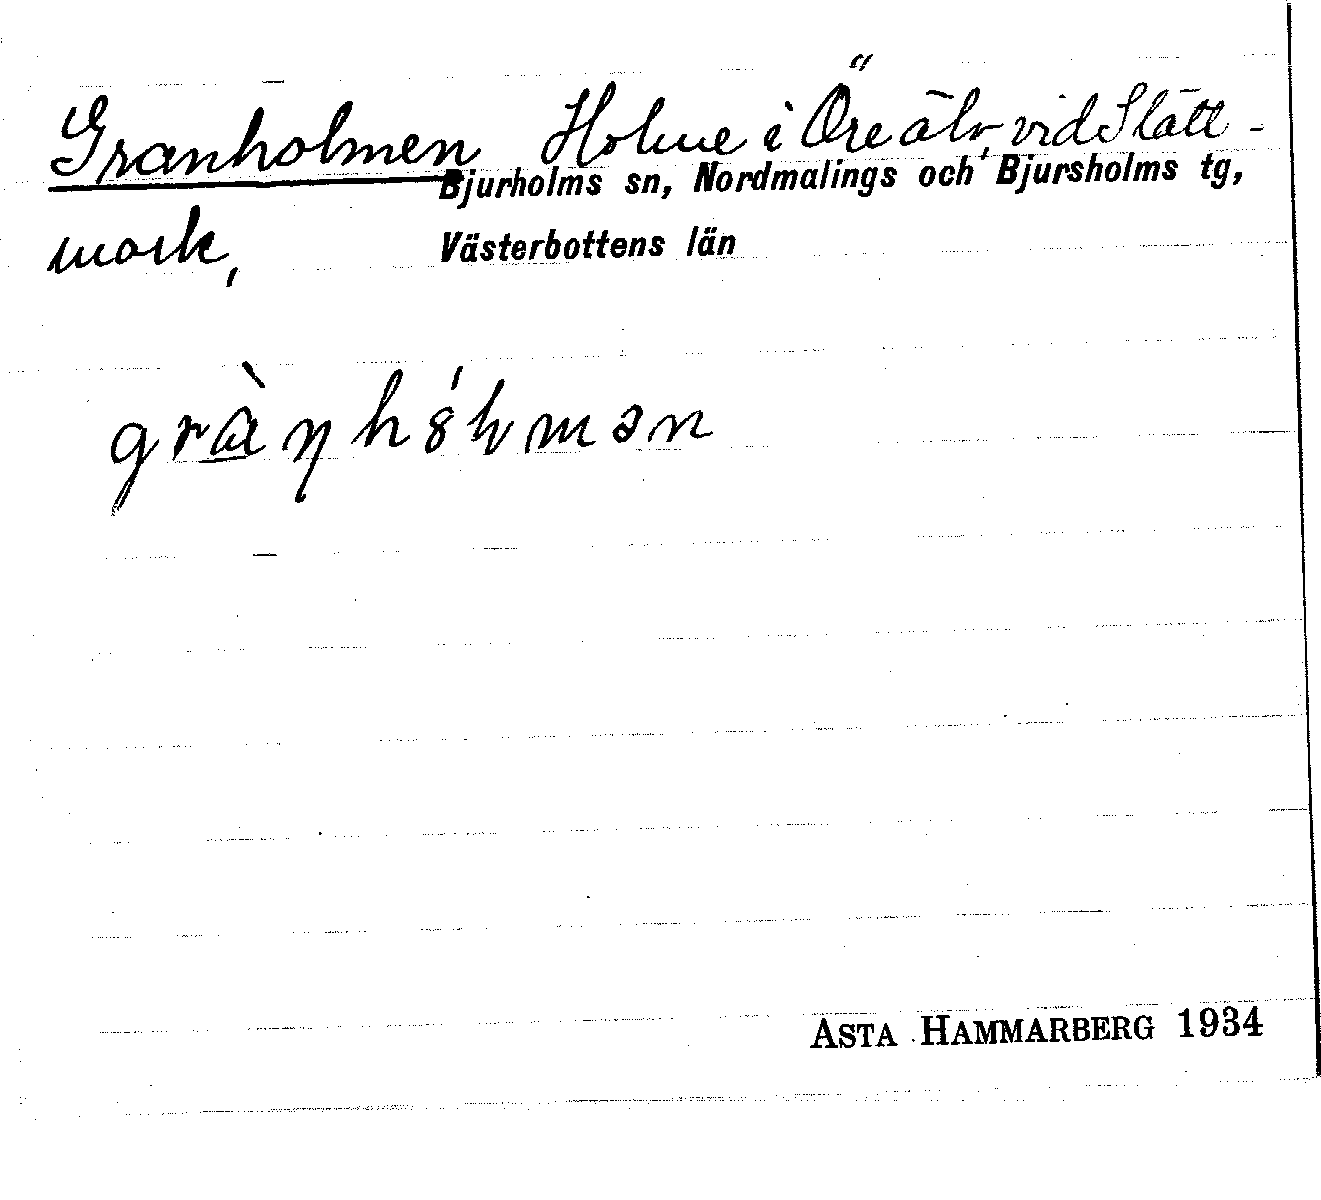 Granholmen Holme i Öre älv, vid Slätt-
Bjurholms sn, Nordmalings och Bjursholms tg,
mark,
Västerbottens län
ASTA HAMMARBERG 1934